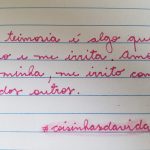 teimosia é algo que
o e me irrita. Ama
minha, me irrito com
dos outros.
#coisinhasdavida